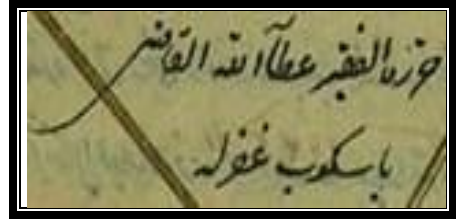 حرره الفقير عطاء الله القاضي
باسكوب غفر له